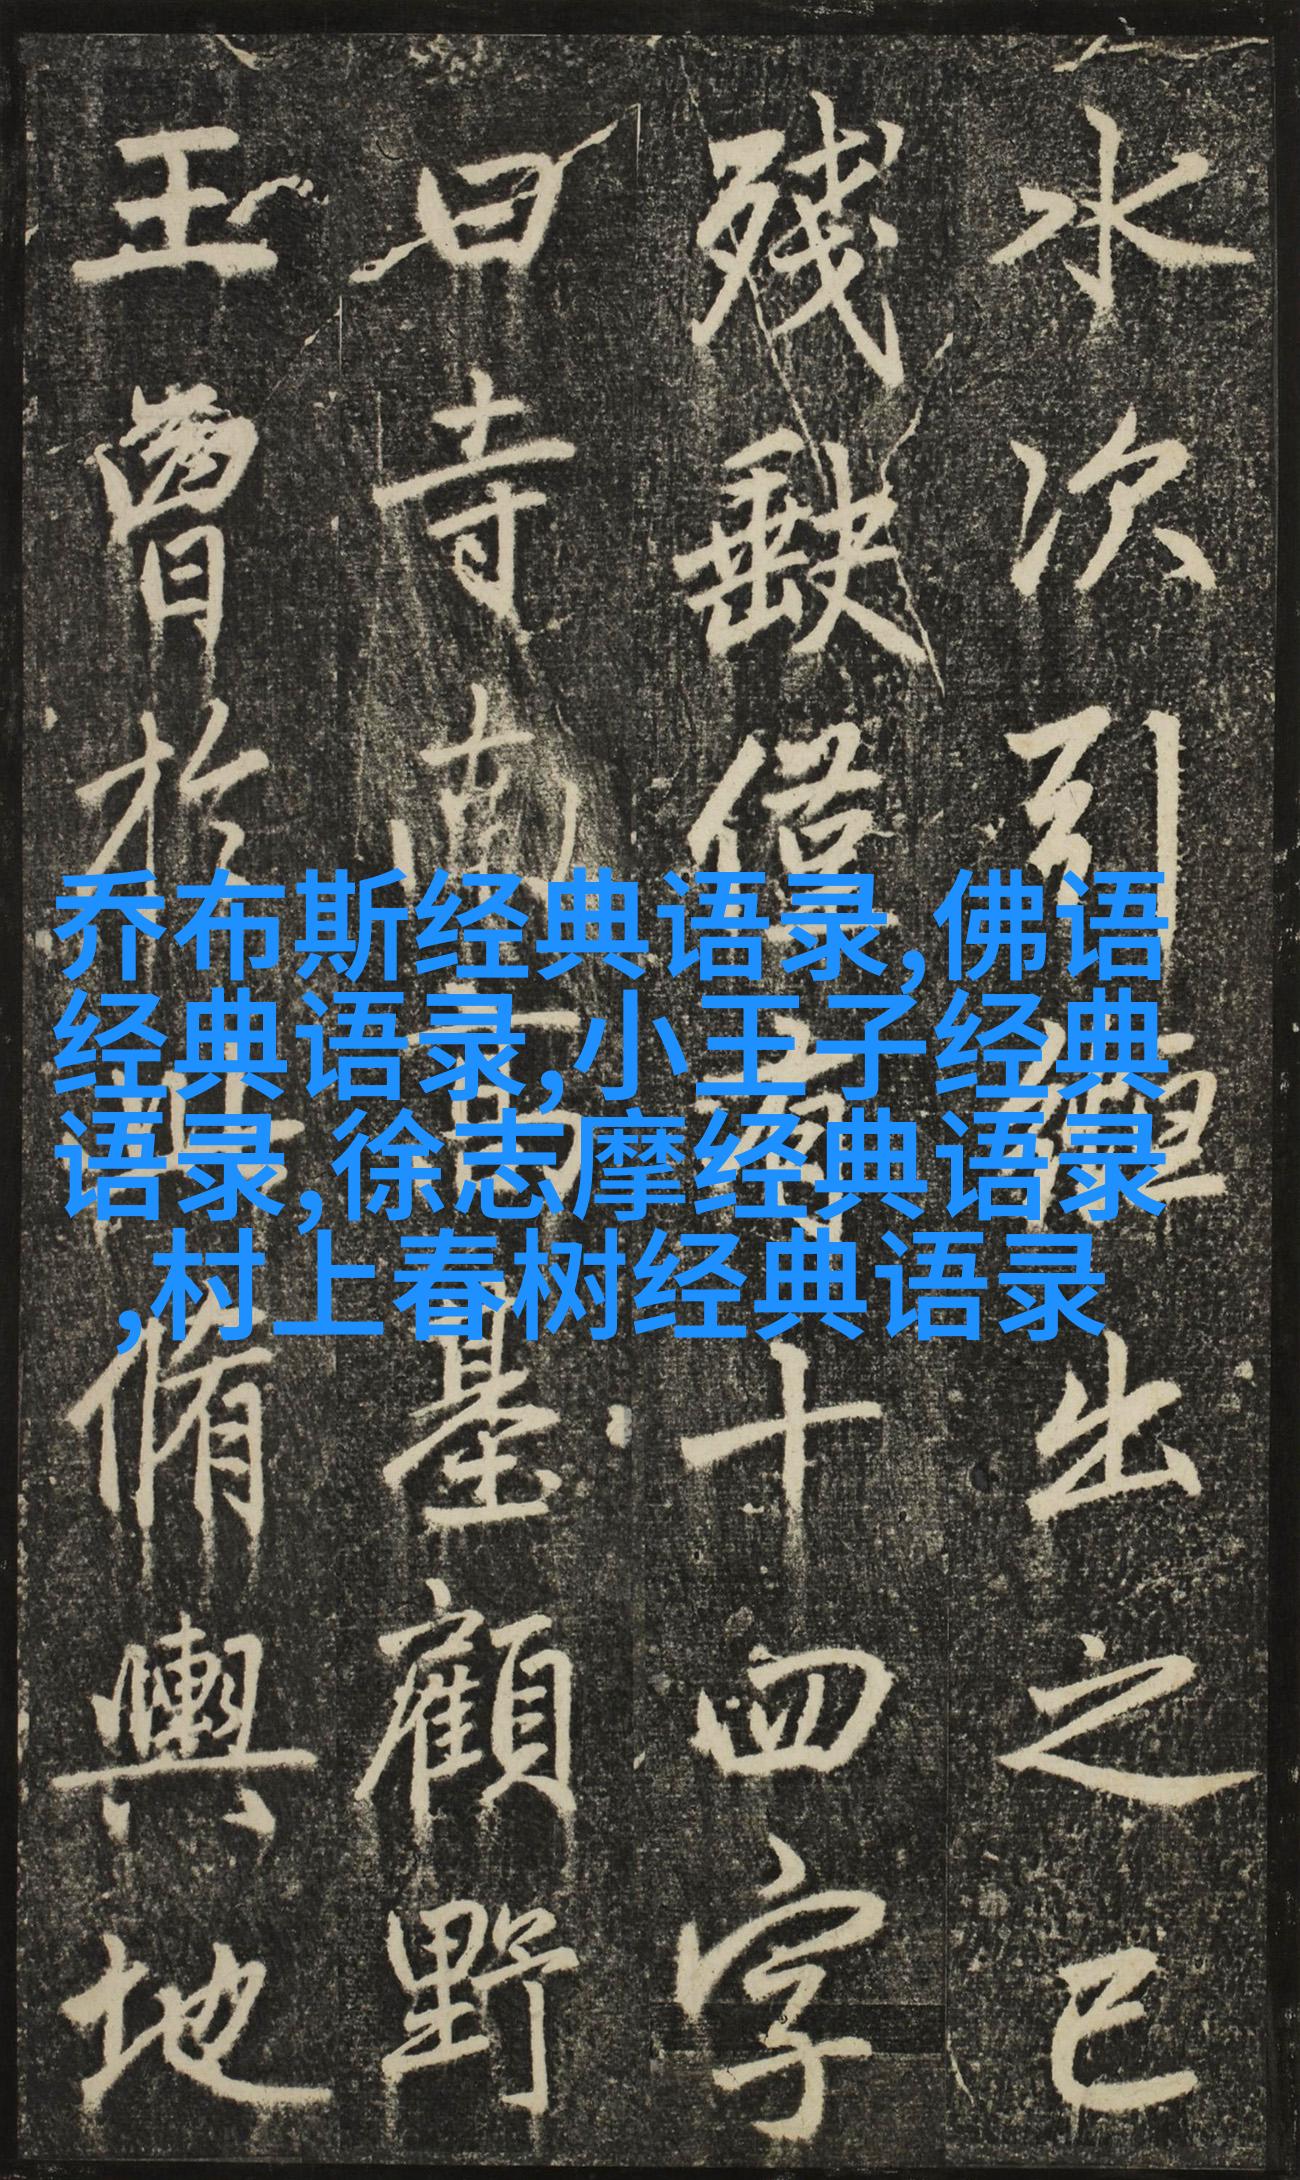 乔布斯经典语录,佛语
经典语录,小王子经典
语录,徐志摩经典语录
,村上春树经典语录
水次引出之已
殘缺僅十四字
曰寺南高基顧野
王曾於此脩輿地